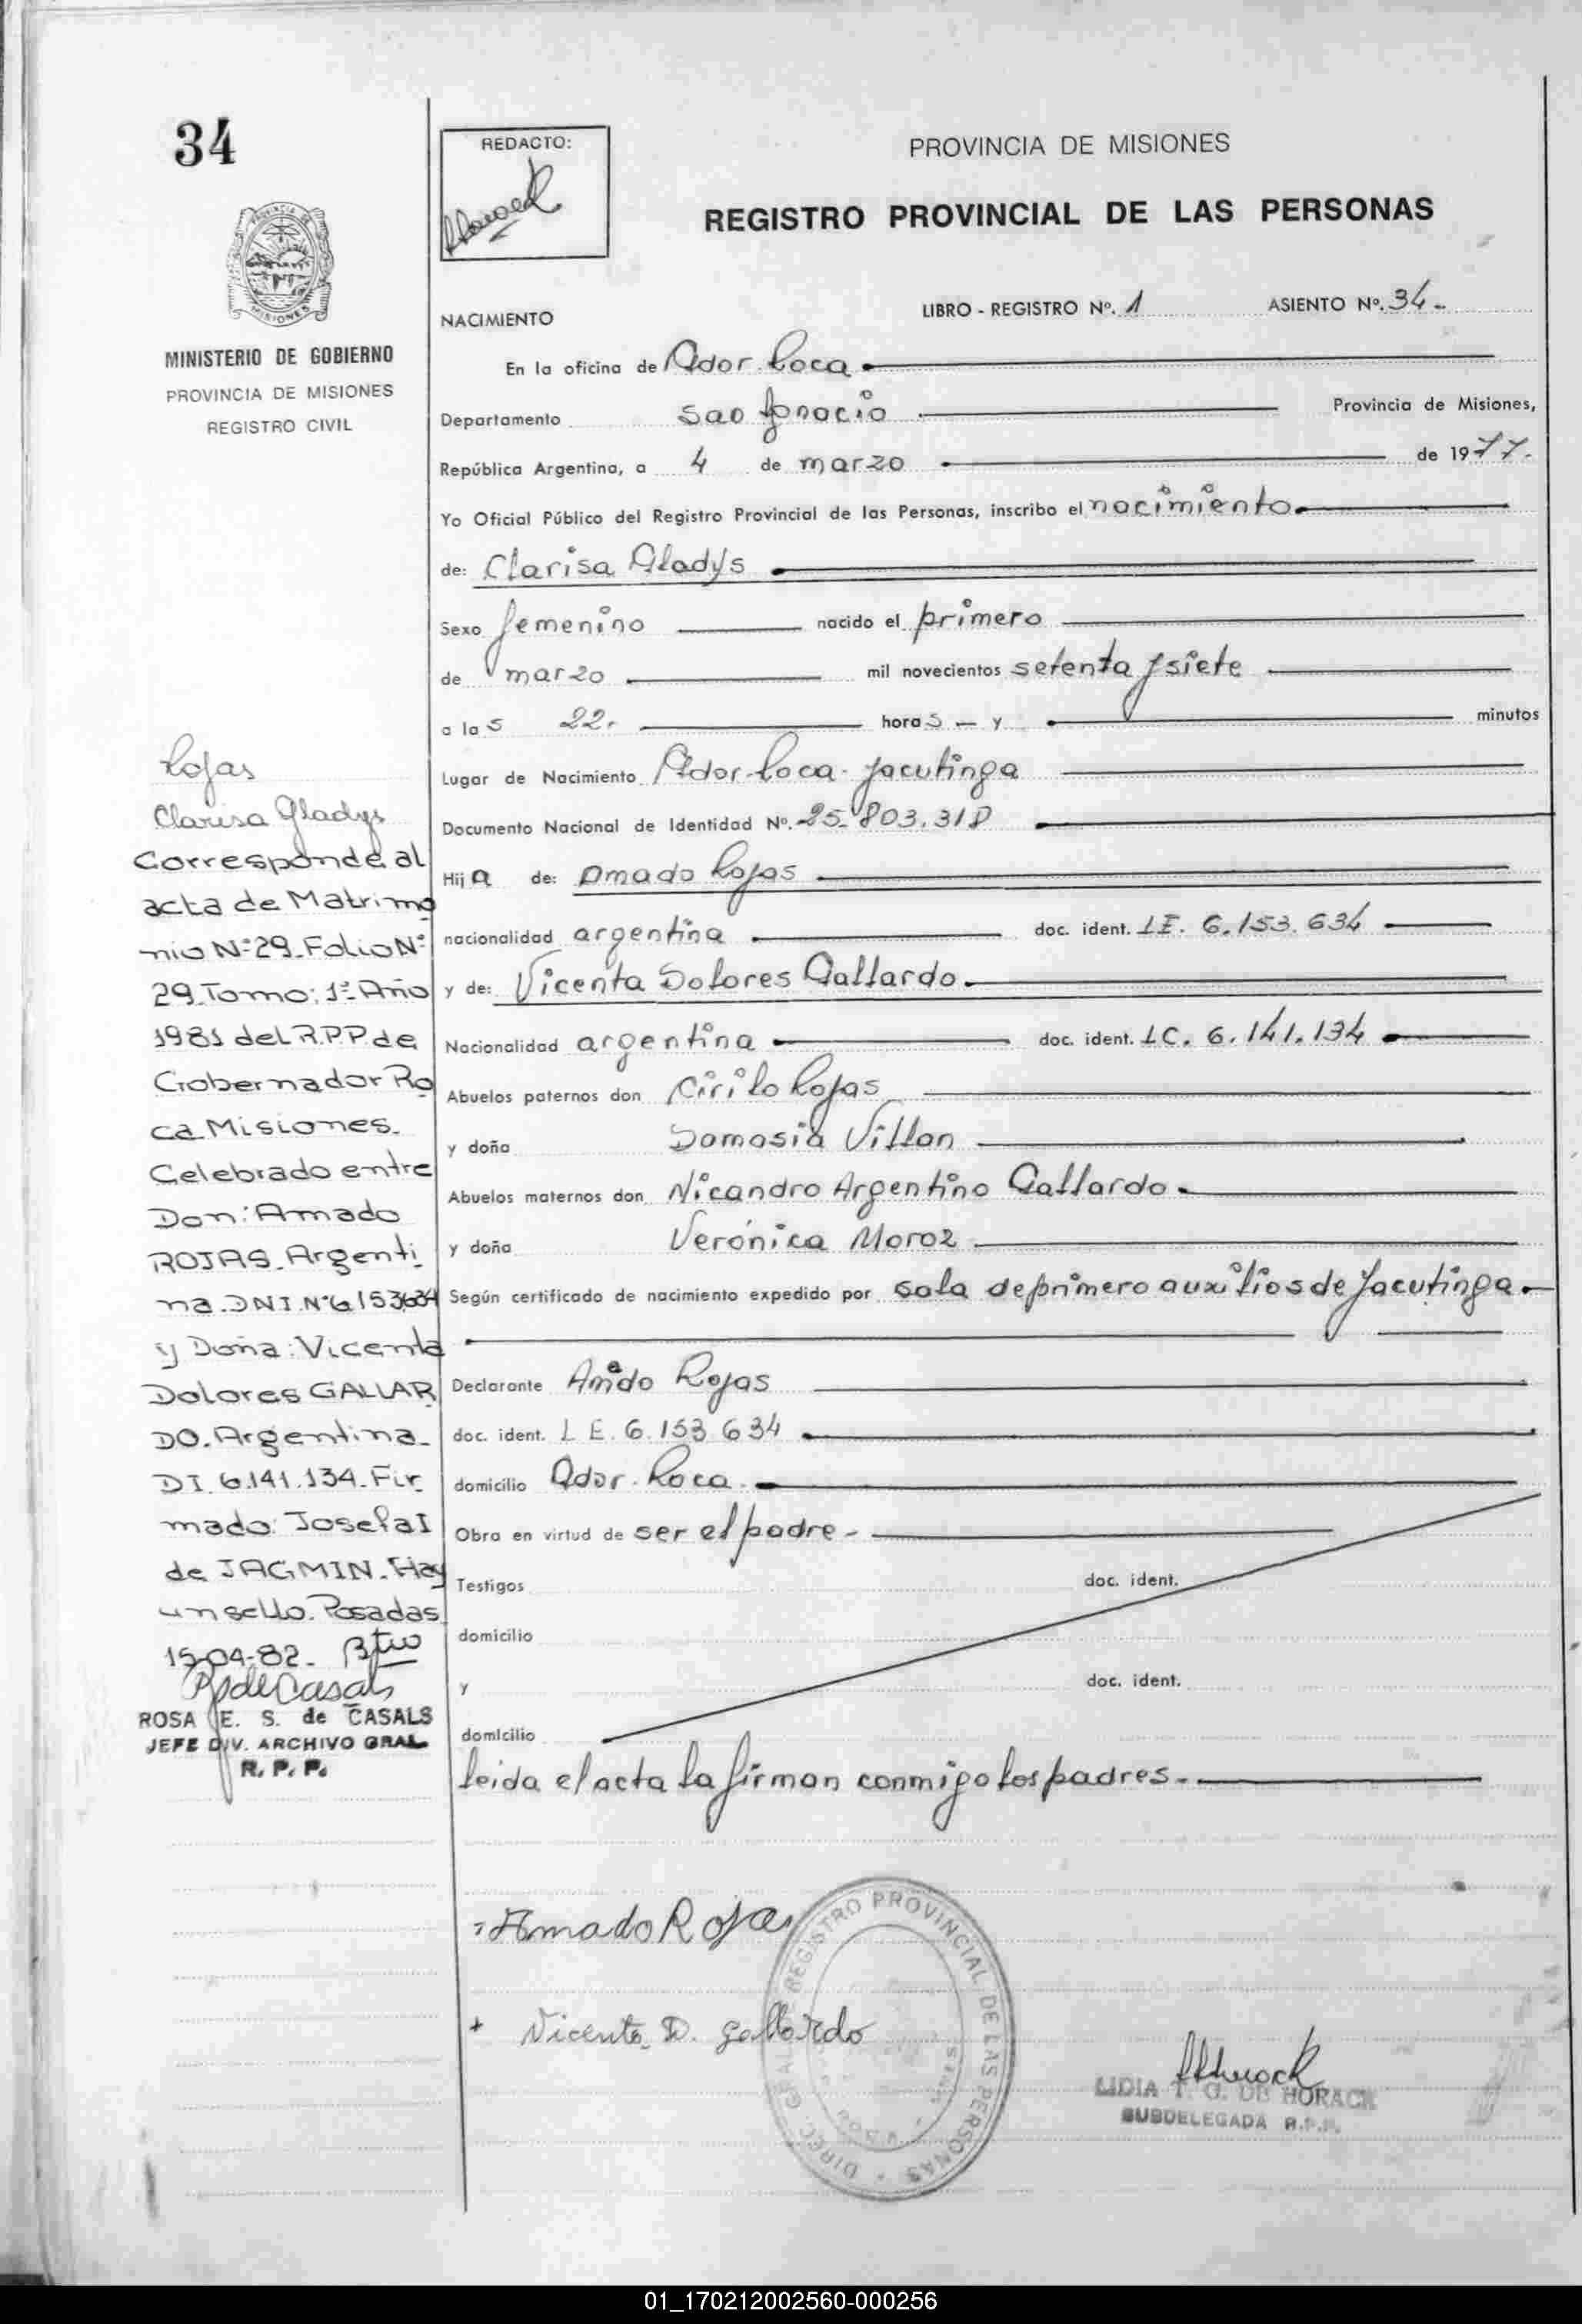 34
MINISTERIO DE GOBIERNO
PROVINCIA DE MISIONES
REGISTRO CIVIL
Rojas
Clarisa Gladys
Corresponde al
acta de Matrimo
nio Nº 29. Folio Nº
29. Tomo: 1º Año
1981 del R.P.P. de
Gobernador Ro
ca Misiones.
Celebrado entre
Don: Amado
ROJAS. Argenti
na. DNI. Nº 6153634
y Doña: Vicenta
Dolores GALLAR
DO. Argentina.
DI 6.141.134. Fir
mado: Josefa I
de JAGMIN. Hay
un sello. Posadas
15-04-82.
ROSA E. S. de CASALS
JEFE DIV. ARCHIVO GRAL
R. P. P.
REDACTO:
PROVINCIA DE MISIONES
REGISTRO PROVINCIAL DE LAS PERSONAS
NACIMIENTO LIBRO - REGISTRO Nº. 1 ASIENTO Nº. 34.
En la oficina de Gdor. Roca
Departamento San Ignacio Provincia de Misiones,
República Argentina, a 4 de marzo de 1977.
Yo Oficial Público del Registro Provincial de las Personas, inscribo el nacimiento
de: Clarisa Gladys
Sexo femenino nacido el primero
de marzo mil novecientos setenta y siete
a las 22. horas — y minutos
Lugar de Nacimiento Gdor. Roca - Jacutinga
Documento Nacional de Identidad Nº. 25.803.318
Hija de: Amado Rojas
nacionalidad argentina doc. ident. LE. 6.153.634
y de: Vicenta Dolores Gallardo.
Nacionalidad argentina doc. ident. LC. 6.141.134
Abuelos paternos don Cirilo Rojas
y doña Damasia Villan
Abuelos maternos don Nicandro Argentino Gallardo.
y doña Verónica Moroz
Según certificado de nacimiento expedido por sala de primero auxilios de Jacutinga.
Declarante Amado Rojas
doc. ident. L E. 6.153 634
domicilio Gdor. Roca
Obra en virtud de ser el padre -
Testigos doc. ident.
domicilio
y doc. ident.
domicilio
leida el acta la firman conmigo los padres.
Amado Rojas
Vicenta D. Gallardo
DIREC. GRAL. REGISTRO PROVINCIAL DE LAS PERSONAS
LIDIA T. G. DE HORACK
SUBDELEGADA R.P.P.
01_170212002560-000256